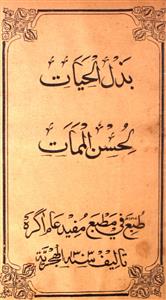 بذل الحیات
لحسن الممات
طبع فی مطبع مفید عام آگره
تالیف سنه ۱۳۰۳ الهجریة